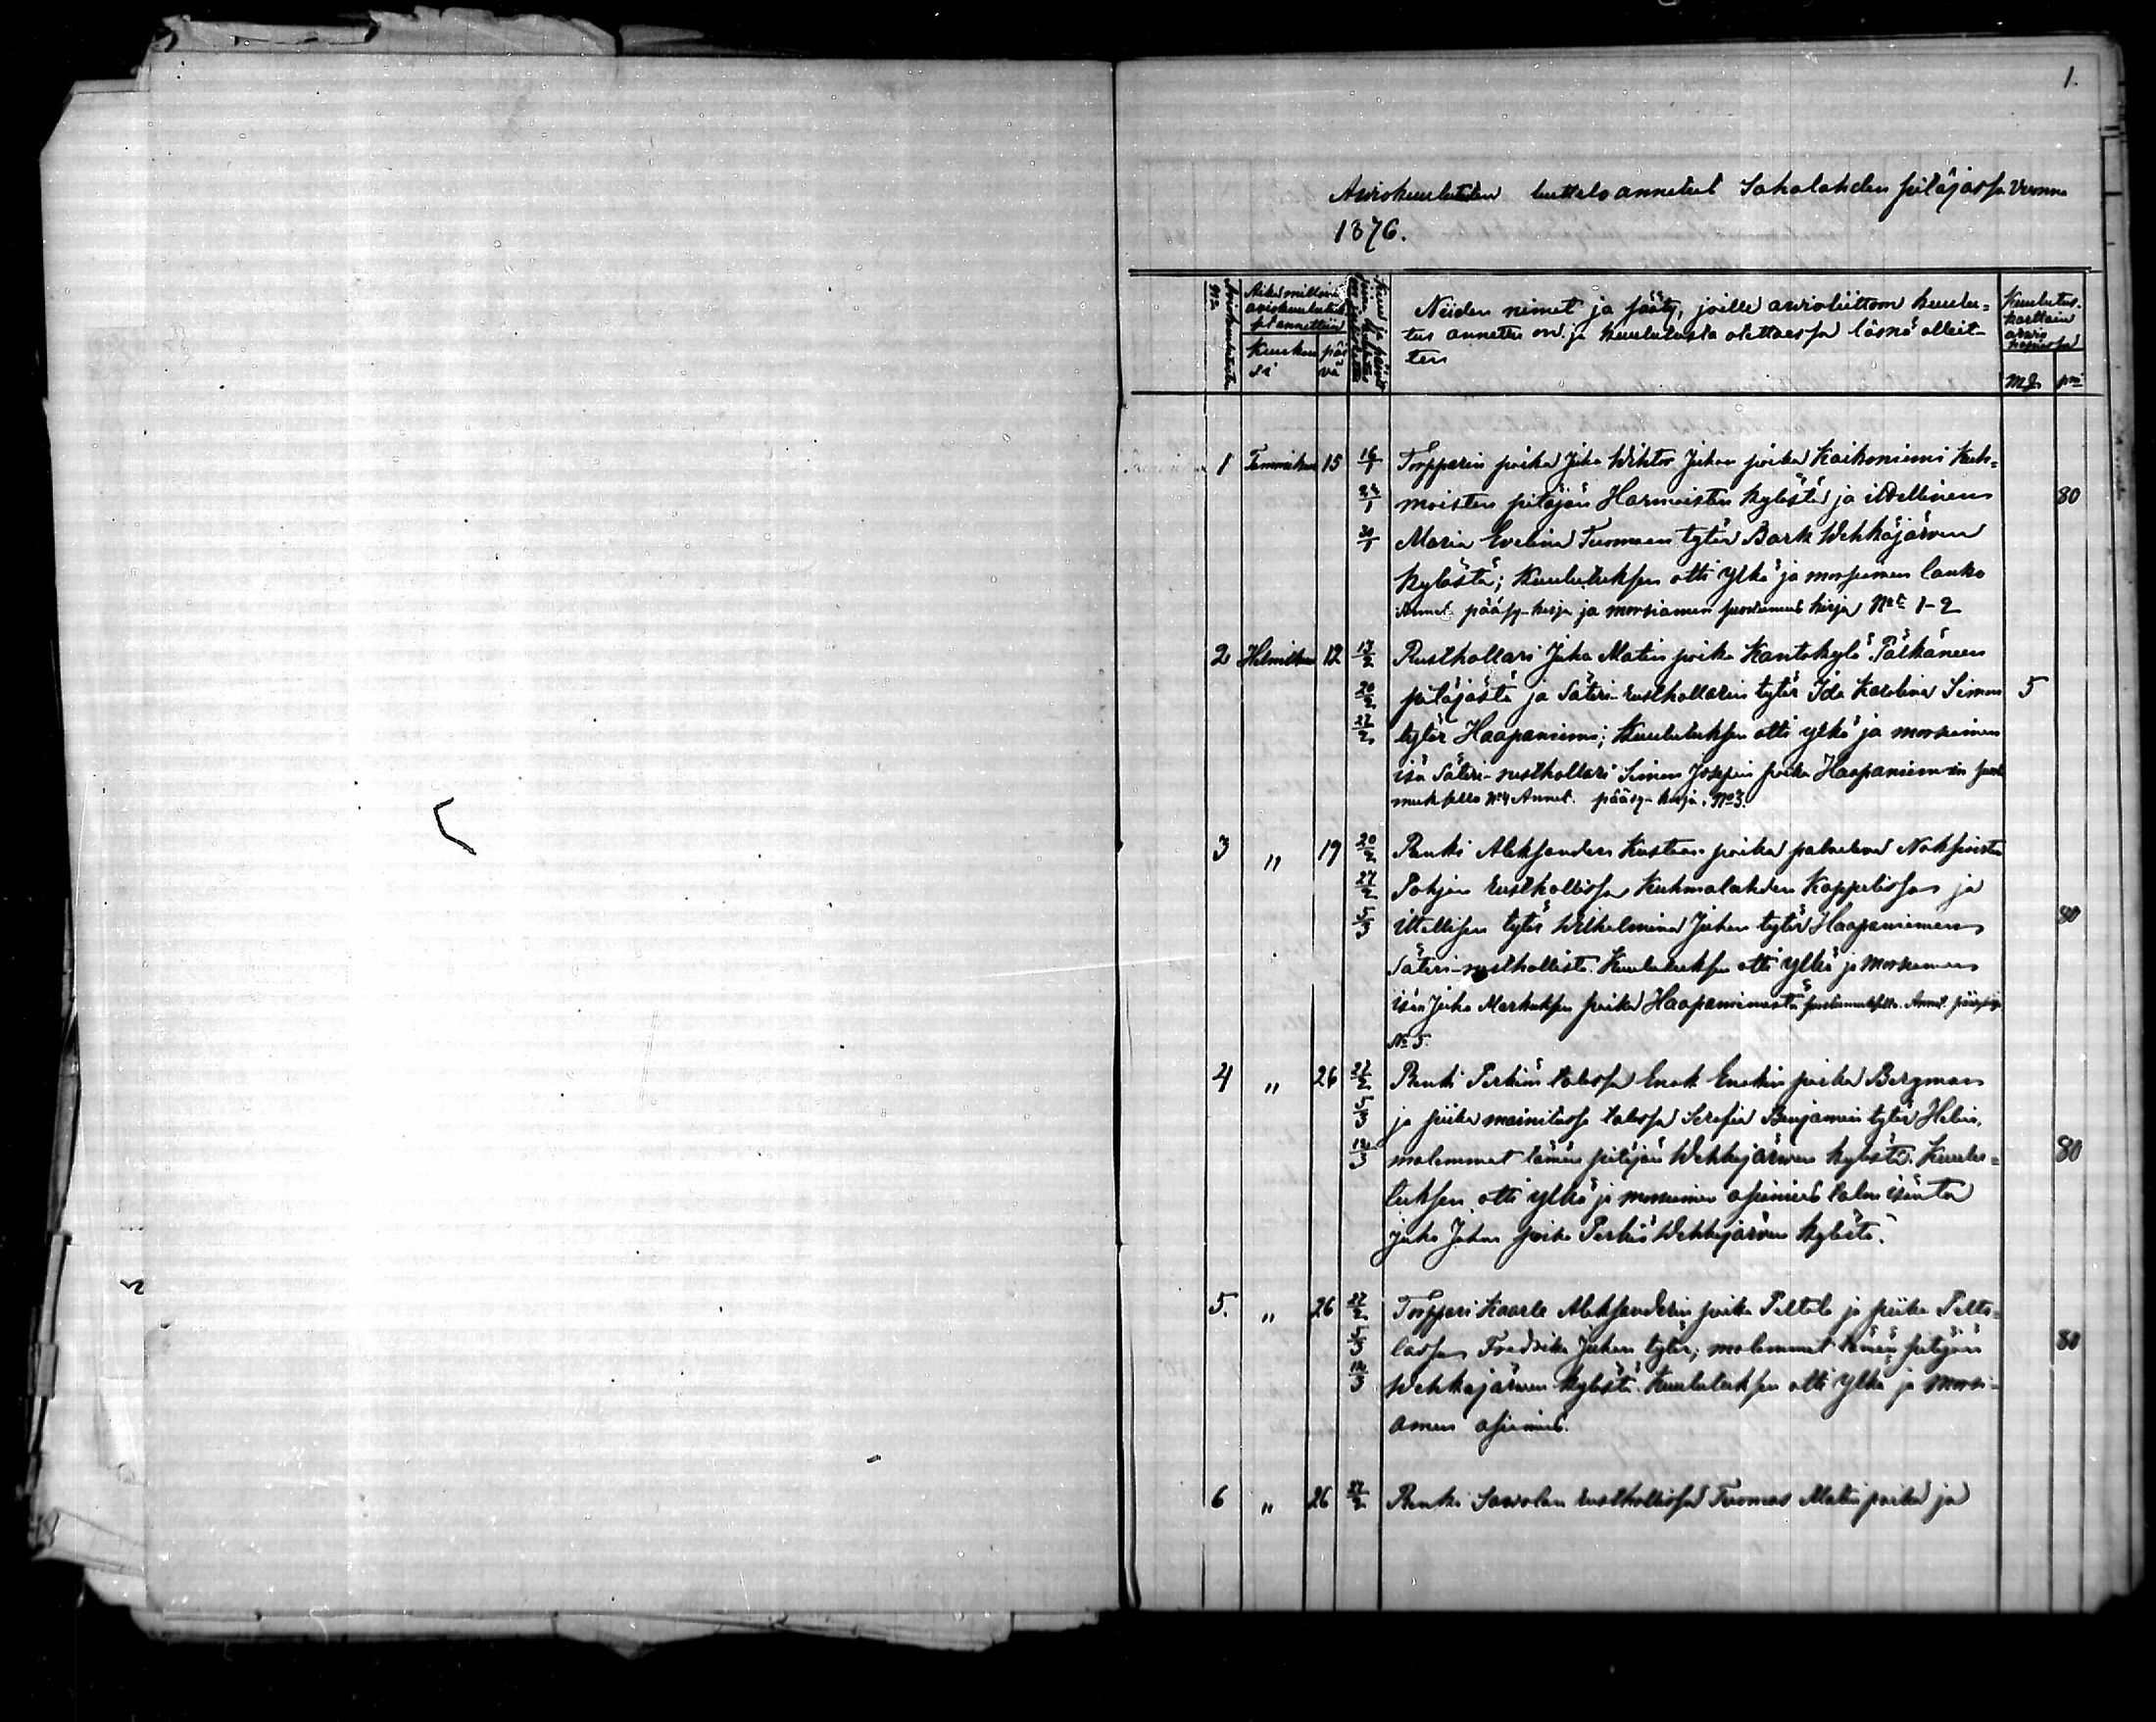 1.
Awiokuulutusten luettelo annetut Sahalahden pitäjässä vuonna
1876.
Awiokuulutusten No
Aika milloin awiokuulutukset annettiin
Kuukausi
päivä
Niiden nimet ja sääty, joille awioliittoon kuulu-
tus annettu on ja kuulutusta otettaessa läsnä olleit-
ten
Kuulutus-karttain
Mk
pni
1 Tammikuu 15 16/1 Torpparin poika Juha Wihtor Juhan poika Kaikoniemi Kuh=
24/1 moisten pitäjän Harmoisten kylästä ja itsellinen 80
30/1 Maria Evelina Tuomaan tytär Bark Wehkajärwen
kylästä; Kuulutuksen otti ylkä ja morsiamen lanko
Annet. pääsy-kirja ja morsiamen suostumus kirja No 1-2
2 Helmikuu 12 13/2 Rusthollari Juha Matin poika Kantokylä Pälkäneen
20/2 pitäjästä ja Säteri-rusthollarin tytär Ida Karolina Simon 5
27/2 tytär Haapaniemi; Kuulutuksen otti ylkä ja morsiamen
isä Säteri-rusthollari Simon Josepin poika Haapaniemi-in suos
muksella No 4 Annet. pääsy-kirja. No 3.
3 " 19 20/2 Renki Aleksanderi Kustaan poika palweleva
27/2 Pohjan rusthollissa Kuhmalahden Kappelissa ja
5/3 itsellisen tytär Wilhelmina Juhan tytär Haapaniemen 80
Säteri-rusthollista. Kuulutuksen otti ylkä ja morsiamen
isä Juha Markuksen poika Haapaniemestä suostumuksella. Annet.
No 5.
4 " 26 27/2 Renki Perkiön talossa Enok Enokin poika Bergman
5/3 ja piika mainitussa talossa Serafia Benjamin tytär Helin,
12/3 molemmat tämän pitäjän Wehkajärwen kylästä. Kuulu= 80
tuksen otti ylkä ja morsiamen asianies talon isäntä
Juha Juhan poika Perkiö Wehkajärwen kylästä.
5. " 26 27/2 Torppari Kaarle Aleksanderin poika Peltola ja piika Pelto-
5/3 lassa Fredrika Juhan tytär; molemmat tämän pitäjän 80
12/3 Wehkajärwen kylästä. Kuulutuksen otti ylkä ja morsi-
amen asianies.
6 " 26 27/2 Renki Sawolan rusthollissa Tuomas Matin poika ja